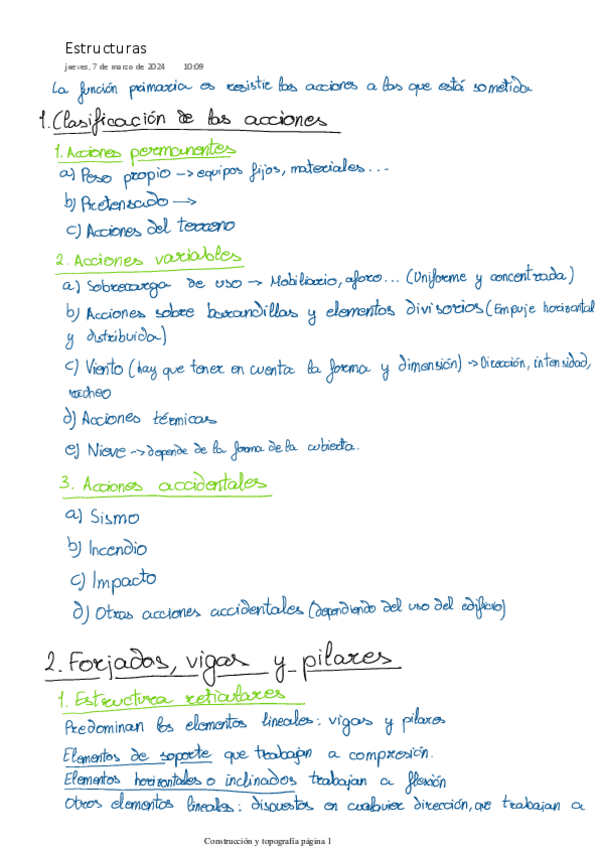 Estructuras
jueves, 7 de marzo de 2024 10:09
La función primaria es resistir las acciones a las que está sometida
1. Clasificación de las acciones
1. Acciones permanentes
a) Peso propio -> equipos fijos, materiales...
b) Pretensado ->
c) Acciones del terreno
2. Acciones variables
a) Sobrecarga de uso -> Mobiliario, aforo... (Uniforme y concentrada)
b) Acciones sobre barandillas y elementos divisorios (Empuje horizontal
y distribuida)
c) Viento (hay que tener en cuenta la forma y dimensión) -> Dirección, intensidad,
d) Acciones térmicas
e) Nieve -> depende de la forma de la cubierta.
3. Acciones accidentales
a) Sismo
b) Incendio
c) Impacto
d) Otras acciones accidentales (dependiendo del uso del edificio)
2. Forjados, vigas y pilares
1. Estructura reticulares
Predominan los elementos lineales: vigas y pilares
Elementos de soporte que trabajan a compresión.
Elementos horizontales o inclinados trabajan a flexión
Otros elementos lineales: dispuestos en cualquier dirección, que trabajan a
Construcción y topografía página 1